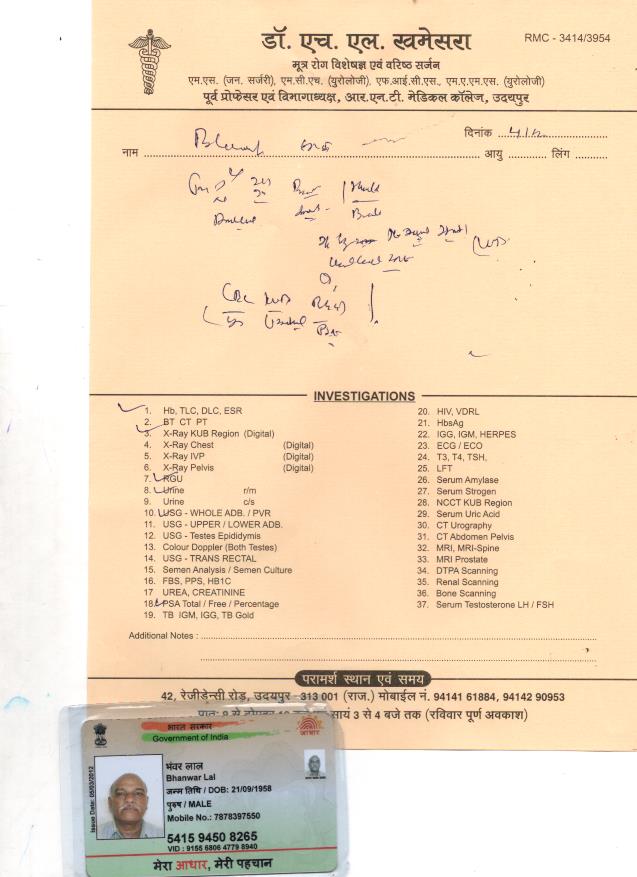 डॉ. एच. एल. खमेसरा
RMC - 3414/3954
मूत्र रोग विशेषज्ञ एवं वरिष्ठ सर्जन
एम.एस. (जन. सर्जरी), एम.सी.एच. (युरोलोजी), एफ.आई.सी.एस., एम.ए.एम.एस. (युरोलोजी)
पूर्व प्रोफेसर एवं विभागाध्यक्ष, आर.एन.टी. मेडिकल कॉलेज, उदयपुर
दिनांक
नाम आयु लिंग
INVESTIGATIONS
1. Hb, TLC, DLC, ESR
2. BT CT PT
3. X-Ray KUB Region (Digital)
4. X-Ray Chest (Digital)
5. X-Ray IVP (Digital)
6. X-Ray Pelvis (Digital)
7. RGU
8. Urine r/m
9. Urine c/s
10. USG - WHOLE ADB. / PVR
11. USG - UPPER / LOWER ADB.
12. USG - Testes Epididymis
13. Colour Doppler (Both Testes)
14. USG - TRANS RECTAL
15. Semen Analysis / Semen Culture
16. FBS, PPS, HB1C
17 UREA, CREATININE
18. PSA Total / Free / Percentage
19. TB IGM, IGG, TB Gold
20. HIV, VDRL
21. HbsAg
22. IGG, IGM, HERPES
23. ECG / ECO
24. T3, T4, TSH,
25. LFT
26. Serum Amylase
27. Serum Strogen
28. NCCT KUB Region
29. Serum Uric Acid
30. CT Urography
31. CT Abdomen Pelvis
32. MRI, MRI-Spine
33. MRI Prostate
34. DTPA Scanning
35. Renal Scanning
36. Bone Scanning
37. Serum Testosterone LH / FSH
Additional Notes :
परामर्श स्थान एवं समय
42, रेजीडेन्सी रोड़, उदयपुर - 313 001 (राज.) मोबाईल नं. 94141 61884, 94142 90953
सायं 3 से 4 बजे तक (रविवार पूर्ण अवकाश)
भारत सरकार
Government of India
आधार
Issue Date: 05/03/2012
भंवर लाल
Bhanwar Lal
जन्म तिथि / DOB: 21/09/1958
पुरुष / MALE
Mobile No.: 7878397550
5415 9450 8265
VID : 9155 6806 4779 8940
मेरा आधार, मेरी पहचान